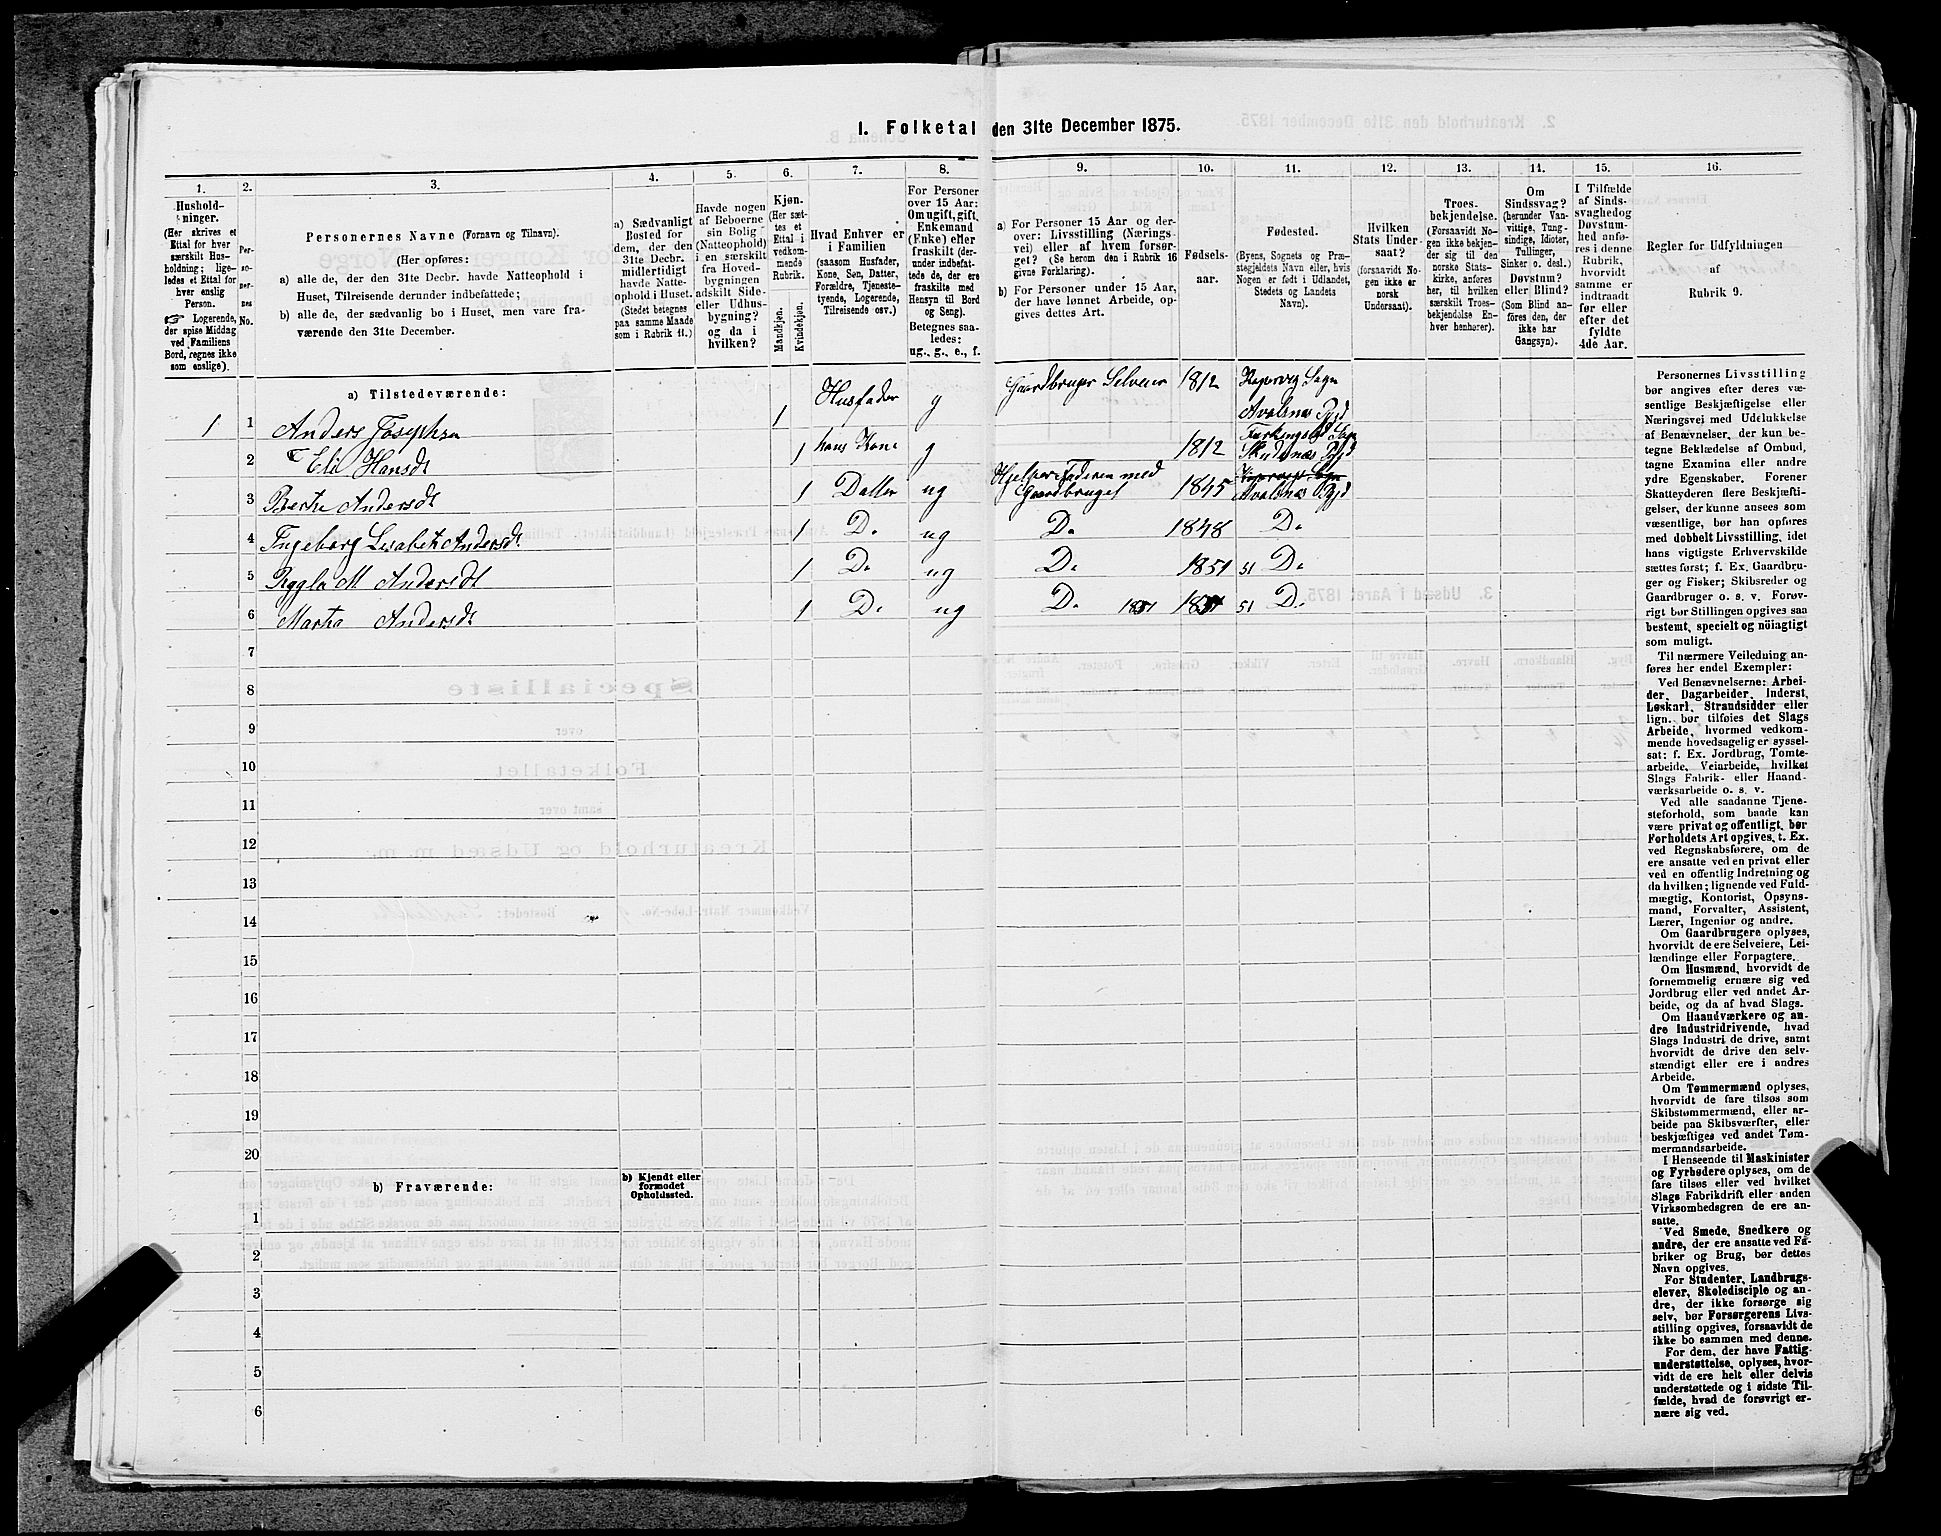 1. Folketal den 31te December 1875.
1.
Hushold-
ninger.
(Her skrives et
Ettal for hver
særskilt Hus-
holdning; lige-
ledes et Ettal for
hver enslig
Person.
☞ Logerende,
der spise Middag
ved Familiens
Bord, regnes ikke
som enslige).
2.
Per-
so-
ner-
nes
No.
3.
Personernes Navne (Fornavn og Tilnavn).
(Her opføres:
a) alle de, der den 31te Decbr. havde Natteophold i
Huset, Tilreisende derunder indbefattede;
b) alle de, der sædvanlig bo i Huset, men vare fra-
værende den 31te December.
4.
a) Sædvanligt
Bosted for
dem, der den
31te Decbr.
midlertidigt
havde Natte-
ophold i Huset.
(Stedet betegnes
paa samme Maade
som i Rubrik 11.)
5.
Havde nogen
af Beboerne
sin Bolig
(Natteophold)
i en særskilt
fra Hoved-
bygningen
adskilt Side-
eller Udhus-
bygning?
og da i
hvilken?
6.
Kjøn.
(Her sæt-
tes et
Ettal i
vedkom-
mende
Rubrik.
Mandkjøn.
Kvindekjøn.
7.
Hvad Enhver er
i Familien
(saasom Husfader,
Kone, Søn, Datter,
Forældre, Tjeneste-
tyende, Logerende,
Tilreisende osv.)
8.
For Personer
over 15 Aar:
Om ugift, gift,
Enkemand
(Enke) eller
fraskilt (der-
under indbefat-
tede de, der ere
fraskilte med
Hensyn til Bord
og Seng).
Betegnes saa-
ledes:
ug., g., e., f.
9.
a) For Personer 15 Aar og der-
over: Livsstilling (Nærings-
vei) eller af hvem forsør-
get? (Se herom den i Rubrik 16
givne Forklaring).
b) For Personer under 15 Aar,
der have lønnet Arbeide, op-
gives dettes Art.
10.
Fødsels-
aar.
11.
Fødested.
(Byens, Sognets og Præ-
stegjeldets Navn, eller, hvis
Nogen er født i Udlandet,
Stedets og Landets
Navn).
12.
Hvilken
Stats Under-
saat?
(forsaavidt No-
gen ikke er
norsk
Undersaat).
13.
Troes-
bekjendelse.
(Forsaavidt No-
gen ikke bekjen-
der sig til den
norske Stats-
kirke, anføres
her, til hvilken
særskilt Troes-
bekjendelse En-
hver henhører).
14.
Om
Sindssvag?
(herunder Van-
vittige, Tung-
sindige, Idioter,
Tullinger,
Sinker o. desl.)
Døvstum?
eller Blind?
(Som Blind an-
føres den, der
ikke har
Gangsyn).
15.
I Tilfælde
af Sinds-
svaghed og
Døvstum-
hed anfø-
res i denne
Rubrik,
hvorvidt
samme er
indtraadt
før eller
efter det
fyldte
4de Aar.
16.
Regler for Udfyldningen
af
Rubrik 9.
a) Tilstedeværende:
1 1 Anders Josephsn 1 Husfader g Gaardbruger Selveier 1812 Sogn
Avalsnæs Pgjd
2 Eli Hansdt 1 hans Kone g 1812 Skudenæs Pgjd
3 Berte Andersdt 1 Datter ug Hjelper Faderen med
Gaardbruget 1845 Avalsnæs Pgjd
4 Ingeborg Lisabeth Andersdt 1 Do ug Do 1848 Do
5 M Andersdt 1 Do ug Do 1851 51 Do
6 Martha Andersdt 1 Do ug Do 1851 51 Do
7
8
9
10
11
12
13
14
15
16
17
18
19
20
b) Fraværende:
b) Kjendt eller
formodet
Opholdssted.
1
2
3
4
5
6
Personernes Livsstilling
bør angives efter deres væ-
sentlige Beskjæftigelse eller
Næringsvei med Udelukkelse
af Benævnelser, der kun be-
tegne Beklædelse af Ombud,
tagne Examina eller andre
ydre Egenskaber. Forener
Skatteyderen flere Beskjæfti-
gelser, der kunne ansees som
væsentlige, bør han opføres
med dobbelt Livsstilling, idet
hans vigtigste Erhvervskilde
sættes først; f. Ex. Gaardbru-
ger og Fisker; Skibsreder og
Gaardbruger o. s. v. Forøv-
rigt bør Stillingen opgives saa
bestemt, specielt og nöiagtigt
som muligt.
Til nærmere Veiledning an-
føres her endel Exempler:
Ved Benævnelserne: Arbei-
der, Dagarbeider, Inderst,
Løskarl, Strandsidder eller
lign. bør tilføies det Slags
Arbeide, hvormed vedkom-
mende hovedsagelig er syssel-
sat; f. Ex. Jordbrug, Tomte-
arbeide, Veiarbeide, hvilket
Slags Fabrik- eller Haand-
værksarbeide o. s. v.
Ved alle saadanne Tjene-
steforhold, som baade kan
være privat og offentligt, bør
Forholdets Art opgives, t. Ex.
ved Regnskabsførere, om de
ere ansatte ved en privat eller
ved en offentlig Indretning og
da hvilken; lignende ved Fuld-
mægtig, Kontorist, Opsyns-
mand, Forvalter, Assistent,
Lærer, Ingeniør og andre.
Om Gaardbrugere oplyses,
hvorvidt de ere Selveiere, Lei-
lændinge eller Forpagtere.
Om Husmænd, hvorvidt de
fornemmelig ernære sig ved
Jordbrug eller ved andet Ar-
beide, og da af hvad Slags.
Om Haandværkere og an-
dre Industridrivende, hvad
Slags Industri de drive, samt
hvorvidt de drive den selv-
stændigt eller ere i andres
Arbeide.
Om Tømmermænd oplyses,
hvorvidt de fare tilsøs som
Skibstømmermænd, eller ar-
beide paa Skibsværfter, eller
beskjæftiges ved andet Tøm-
mermandsarbeide.
I Henseende til Maskinister
og Fyrbødere oplyses, om de
fare tilsøs eller ved hvilket
Slags Fabrikdrift eller anden
Virksomhedsgren de ere an-
satte.
Ved Smede, Snedkere og
andre, der ere ansatte ved Fa-
briker og Brug, bør dettes
Navn opgives.
For Studenter, Landbrugs-
elever, Skoledisciple og an-
dre, der ikke forsørge sig
selv, bør Forsørgerens Livs-
stilling opgives, forsaavidt de
ikke bo sammen med denne.
For dem, der have Fattig-
understøttelse, oplyses, hvor-
vidt de ere helt eller delvis
understøttede og i sidste Til-
fælde, hvad de forøvrigt er-
nære sig ved.